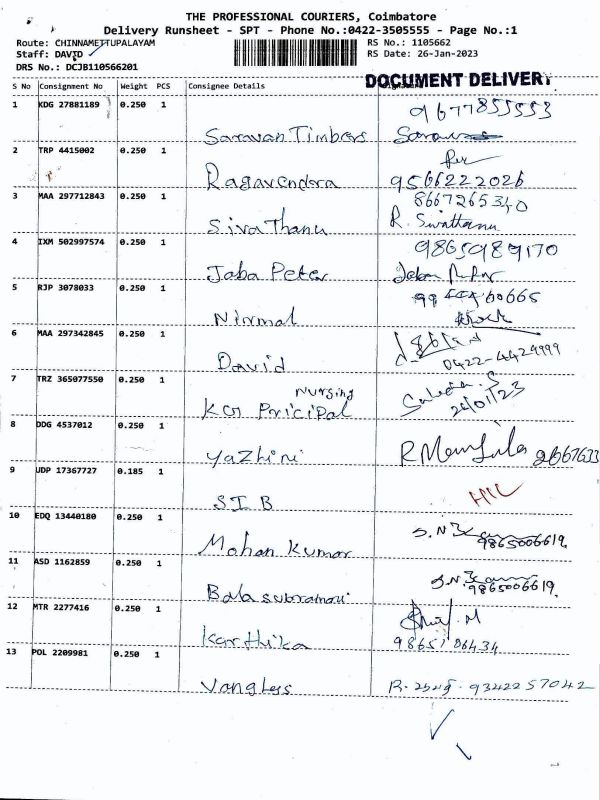 THE PROFESSIONAL COURIERS, Coimbatore
Delivery Runsheet - SPT - Phone No.:0422-3505555 - Page No.:1
Route: CHINNAMETTUPALAYAM
RS No.: 1105662
Staff: DAVID
RS Date: 26-Jan-2023
DRS No.: DCJB110566201
DOCUMENT DELIVERY
S No Consignment No Weight PCS Consignee Details
1 KDG 27881189 0.250 1
9677855553
Saravan Timbers
2 TRP 4415002 0.250 1
Ragavendera 9566222026
3 MAA 297712843 0.250 1
8667265340
Siva Thanu R. Sivathanu
4 IXM 502997574 0.250 1
9865989170
Jaba Peter
5 RJP 3078033 0.250 1
Nirmal
6 MAA 297342845 0.250 1
David 0422-4424999
7 TRZ 365077550 0.250 1
Nursing
KCA Pricipal 26/01/23
8 DDG 4537012 0.250 1
Yazhini
9 UDP 17367727 0.185 1
S I B
10 EDQ 13440180 0.250 1
Mohan Kumar 9865006619
11 ASD 1162859 0.250 1
Balasubramani 9865006619
12 MTR 2277416 0.250 1
Karthika
13 POL 2209981 0.250 1
Vangless 9342257042